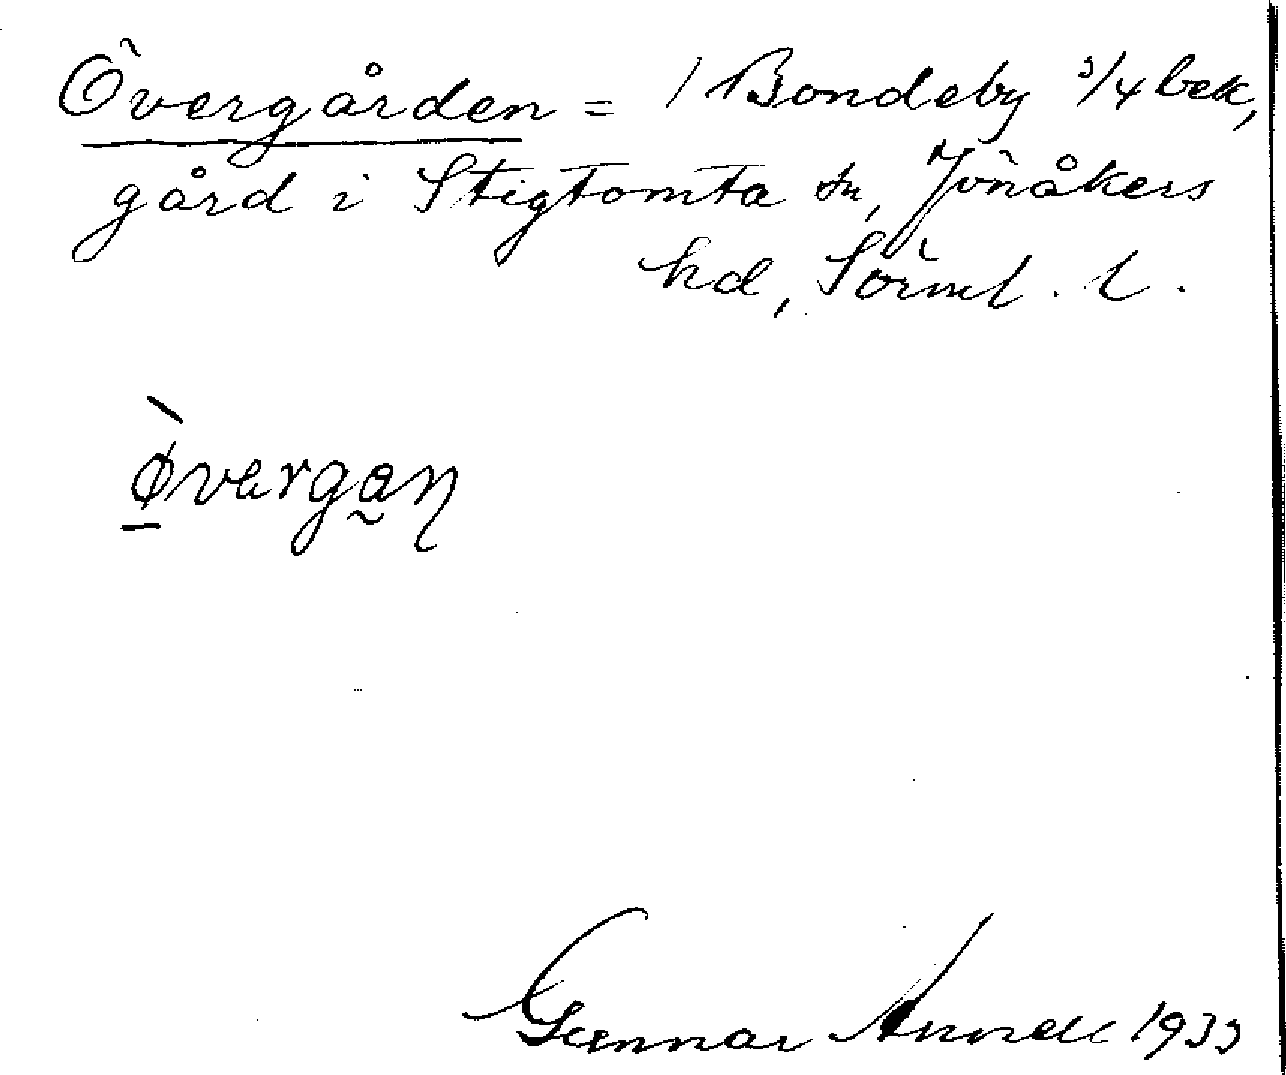 Övergården = 1 Bondeby 3/4 bek,
gård i Stigtomta sn, Jönåkers
hd, Sörml. l.
Øvergan
Gunnar 1933